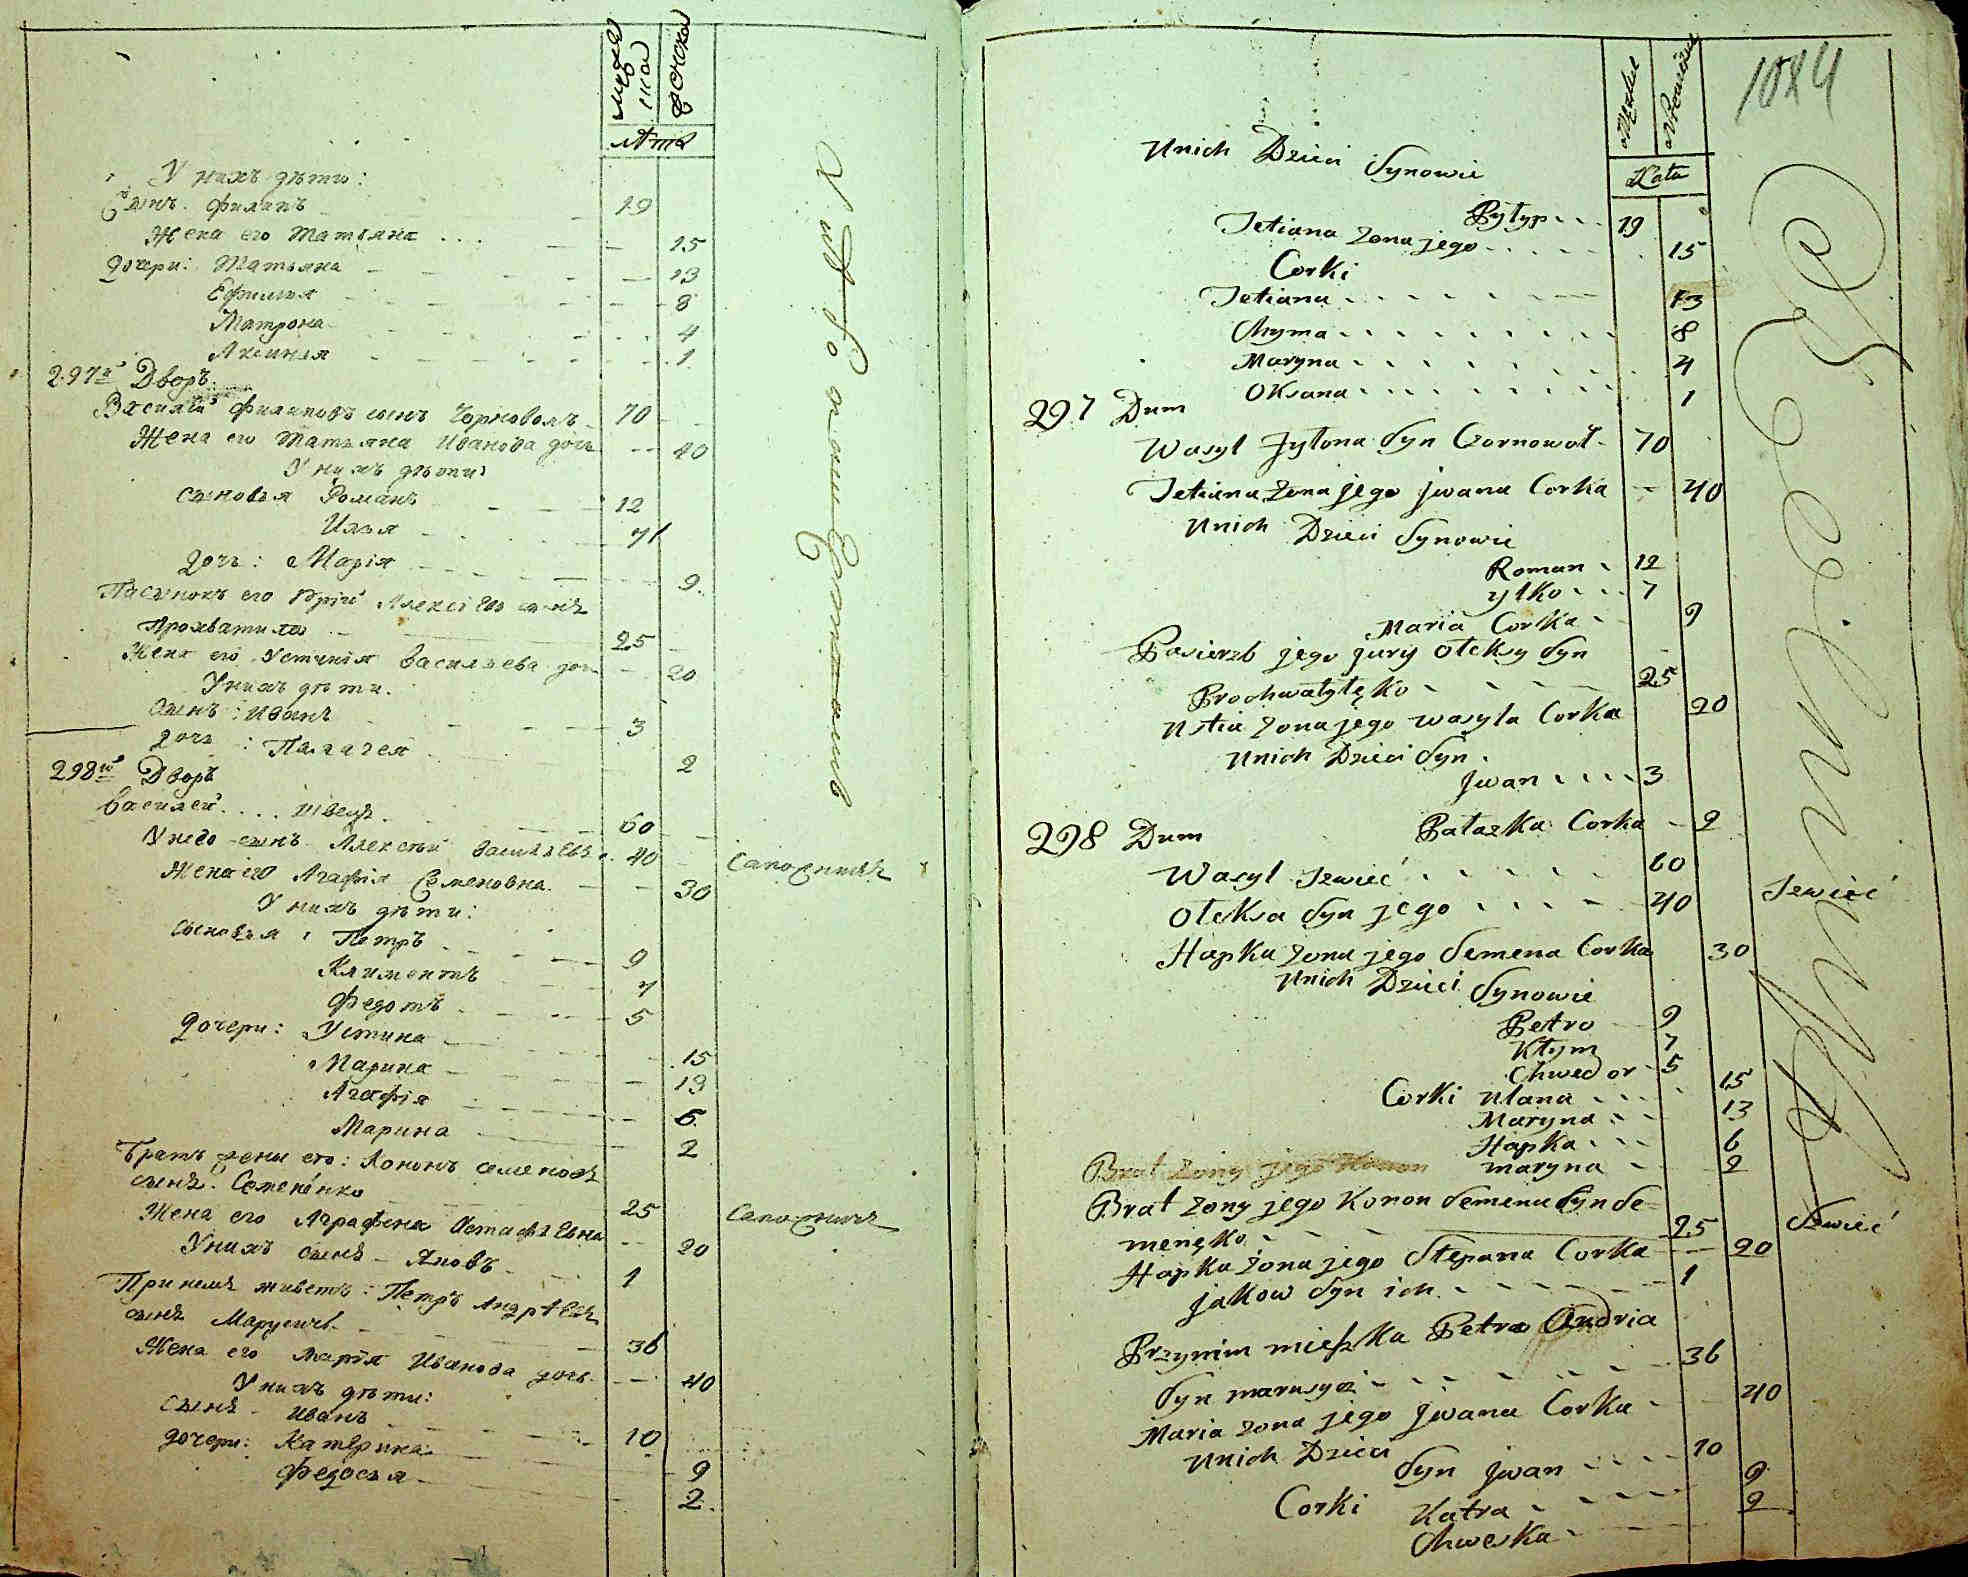 мужеска
женска
Лѣта
У нихъ дѣти:
Сынъ. Филипъ 19
Жена его Татьяна 15
Дочери: Татьяна 13
Ефимия 8
Матрона 4
Аксинья 1
297й Дворъ.
Василий Филиповъ сынъ Чорноволъ 70
Жена его Татьяна Иванова дочь 40
У нихъ дѣти:
Сыновья Романъ 12
Илья 7
Дочь: Марія 9
Пасынокъ его Юрій Алексіевъ сынъ
Прохватило 25
Жена его Устинія Васильева дочь 20
У нихъ дѣти.
Сынъ: Иванъ 3
Дочь: Палагея 2
298й Дворъ
Василей.... Швецъ. 60
У него сынъ Алексѣй Васильевъ 40 Сапожникъ
Жена его Агафія Семеновна 30
У нихъ дѣти:
Сыновья: Петръ 9
Климентъ 7
Федотъ 5
Дочери: Устина 15
Марина 13
Агафія 6
Марина 2
Братъ жены его: Кононъ Семеновъ
сынъ. Семененко 25 Сапожникъ
Жена его Аграфена Остафьевна 20
У нихъ сынъ - Яковъ 1
При немъ живетъ: Петръ Андрѣевъ
сынъ Марусичъ 36
Жена его Марія Иванова дочь 40
У нихъ дѣти:
Сынъ - Иванъ 10
Дочери: Катерина 9
Федосья 2
1024
Męzkie
Niewieście
Lata
Unich Dzieci Synowie
Pyłyp 19
Tetiana żona jego 15
Corki
Tetiana 13
Chyma 8
Maryna 4
Oksana 1
297 Dum
Wasyl Fyłona Syn Czornowoł 70
Tetiana żona jego Jwana Corka 40
Unich Dzieci Synowie
Roman 12
yłko 7
Maria Corka 9
Pasierzb jego jury Ołeksy Syn
Prochwatyłęko 25
Ustia żona jego Wasyla Corka 20
Unich Dzieci Syn.
Jwan 3
Pałazka Corka 2
298 Dum
Wasyl Szwieć 60
Ołeksa Syn jego 40 Szwieć
Hapka żona jego Semena Corka 30
Unich Dzieci Synowie
Petro 9
Kłym 7
Chwedor 5
Corki Ulana 15
Maryna 13
Hapka 6
maryna 2
Brat żony jego Konon
Brat żony jego Konon Semena Syn Se-
menęko 25 Szwieć
Hapka żona jego Stepana Corka 20
jakow Syn ich 1
Przynim mieszka Petro Andria
Syn marusycz 36
Maria żona jego Jwana Corka 40
Unich Dzieci
Syn Jwan 10
Corki Katra 9
Chweska 2